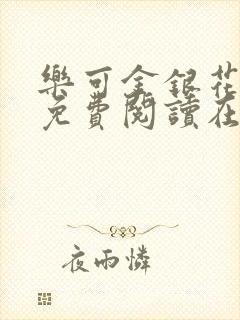 樂可金銀花
免費閱讀在
夜雨憐